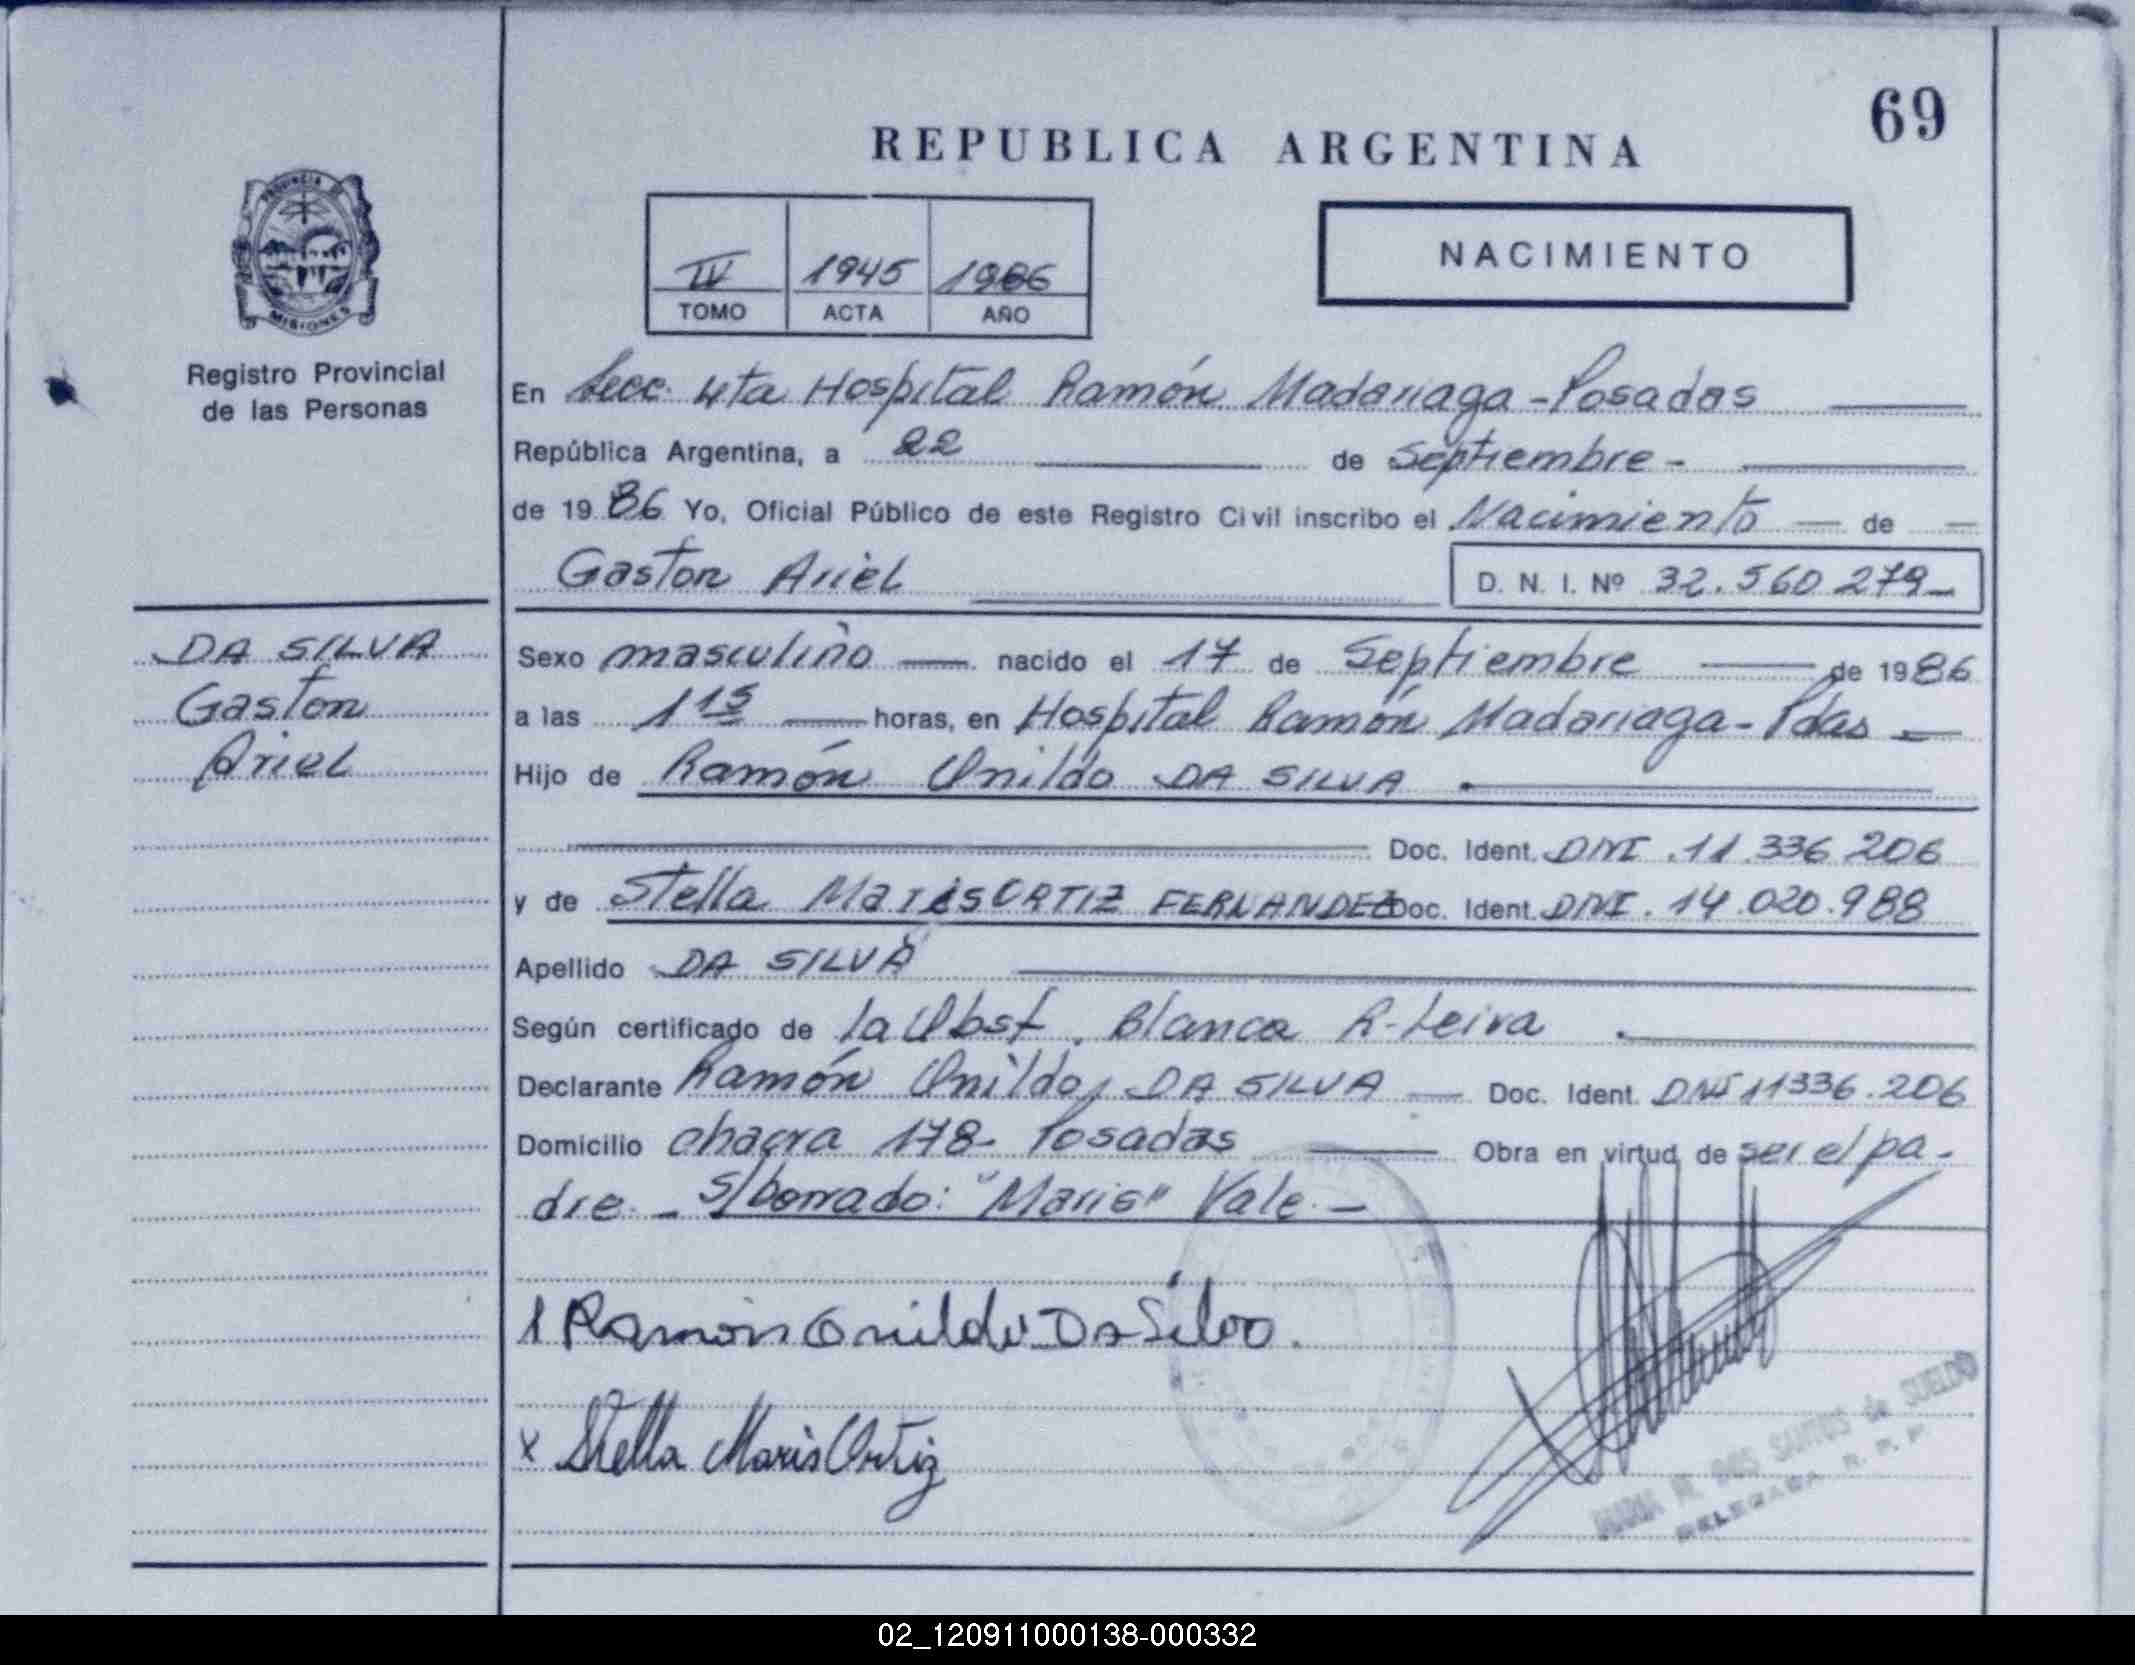 69
REPUBLICA ARGENTINA
PROVINCIA DE
MISIONES
Registro Provincial
de las Personas
IV 1945 1986
TOMO ACTA AÑO
NACIMIENTO
En Secc. 4ta Hospital Ramón Madariaga - Posadas
República Argentina, a 22 de Septiembre -
de 1986 Yo, Oficial Público de este Registro Civil inscribo el Nacimiento de
Gaston Ariel D. N. I. Nº 32.560279
DA SILVA
Gaston
Ariel
Sexo masculino nacido el 17 de Septiembre de 1986
a las 1 15 horas, en Hospital Ramón Madariaga - Pdas
Hijo de Ramón Onildo DA SILVA
Doc. Ident. DNI. 11.336 206
y de Stella Maris ORTIZ FERNANDEZ Doc. Ident. DNI. 14.020.988
Apellido DA SILVA
Según certificado de la Obst. Blanca R. Leiva
Declarante Ramón Onildo, DA SILVA Doc. Ident. DNI 11336.206
Domicilio chacra 178- Posadas Obra en virtud de ser el pa-
dre - S/borrado: "Maris" Vale. -
Ramon Onildo Da Silva.
x Stella Maris Ortiz
MARIA DOS SANTOS de SUELDO
DELEGADA R. P. P.
02_120911000138-000332